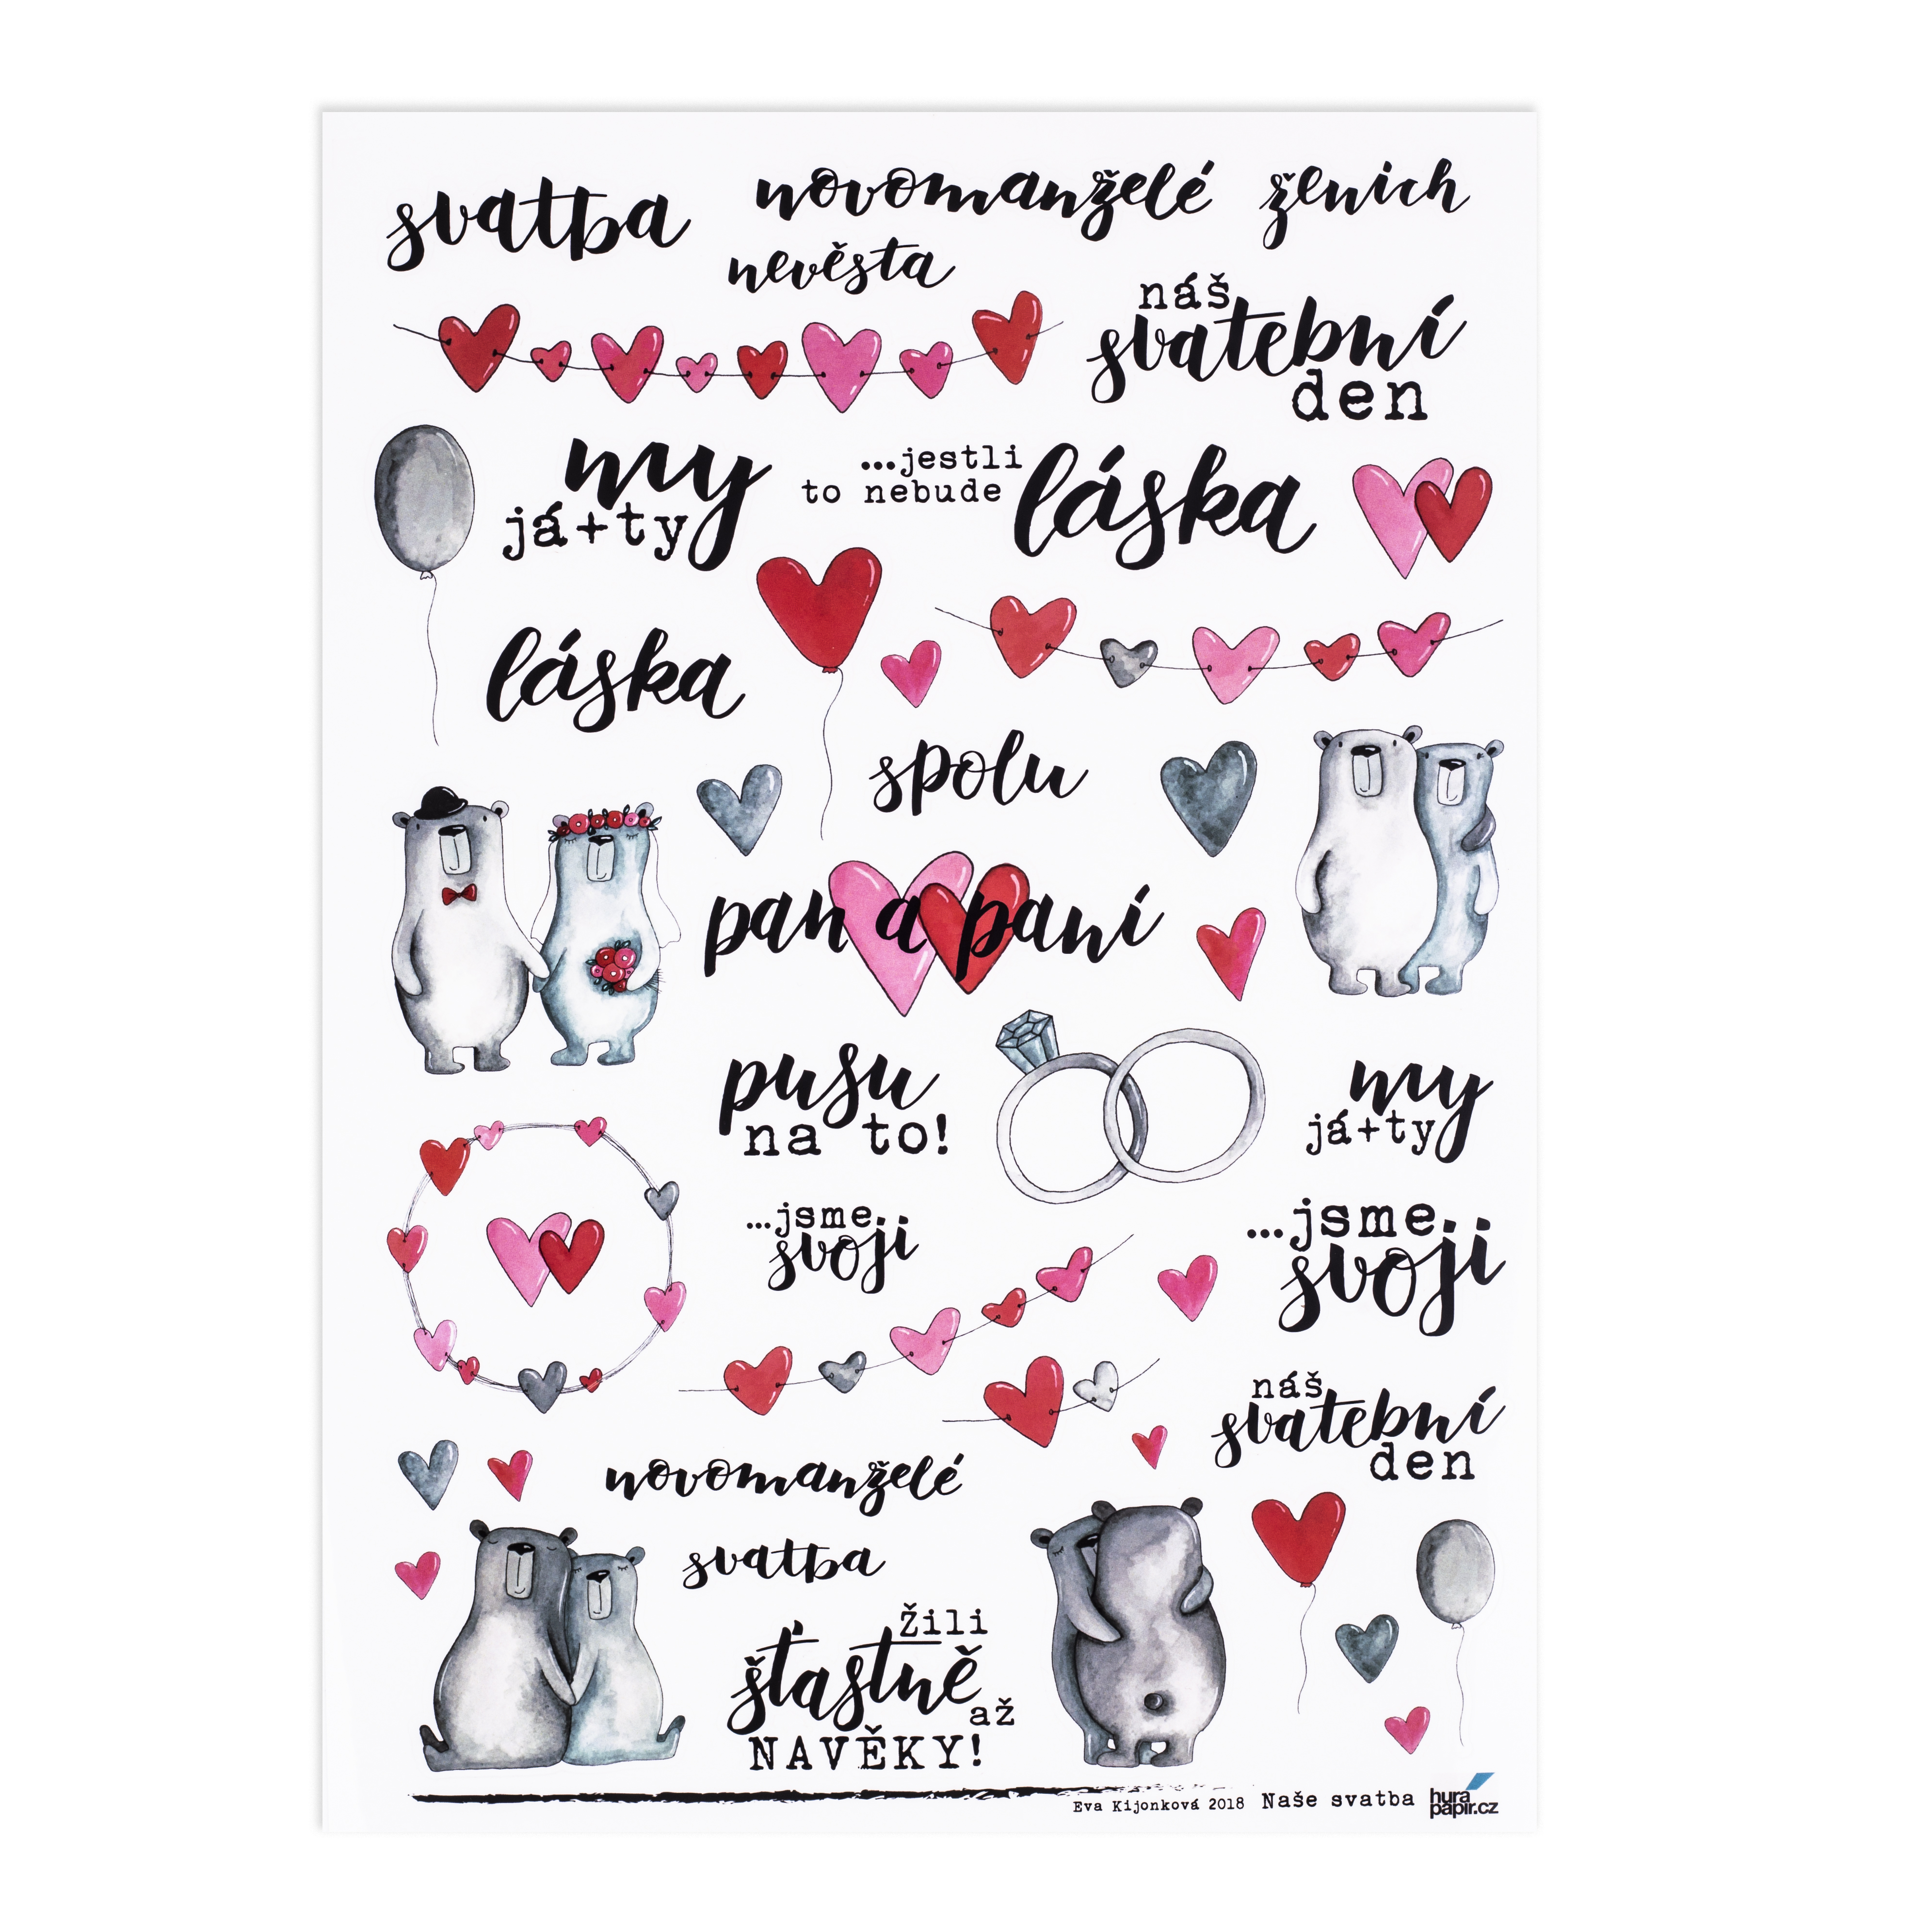 svatba
novomanželé
ženich
nevěsta
náš
svatební
den
my
já+ty
...jestli
to nebude
láska
láska
spolu
pan a paní
pusu
na to!
my
já+ty
...jsme
svoji
...jsme
svoji
náš
svatební
den
novomanželé
svatba
Žili
šťastně
až
NAVĚKY!
Eva Kijonková 2018 Naše svatba
hurá
papír.cz